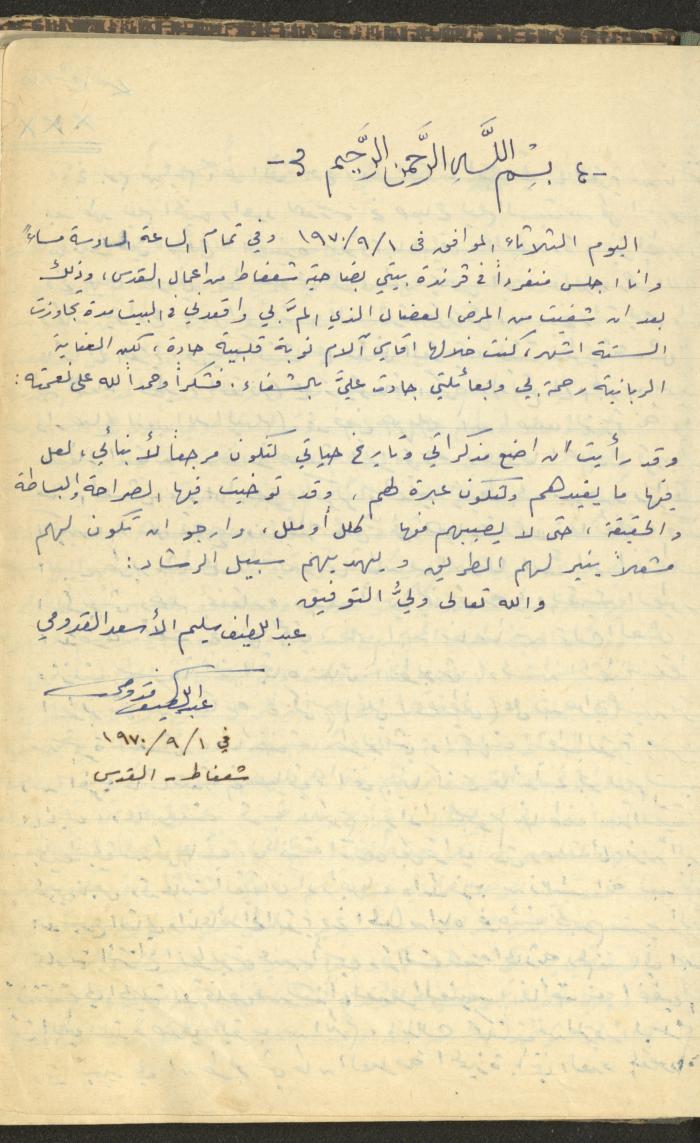 بِسْمِ اللَّهِ الرَّحْمنِ الرَّحِيم
اليوم الثلاثاء الموافق فى ١/٩/١٩٧٠ وفي تمام الساعة السادسة مساءً
وانا اجلس منفرداً في فرندة بيتي بضاحية شعفاط من اعمال القدس، وذلك
بعد ان شفيت من المرض العضال الذي المَّ بي واقعدني في البيت مدة تجاوزت
الستة اشهر، كنت خلالها اقاسي آلام نوبة قلبية حادة، لكن العناية
الربانية رحمة بي وبعائلتي جادت عليَّ بالشفاء. فشكراً وحمداً لله على نعمته:
وقد رأيت ان اضع مذكراتي وتاريخ حياتي لتكون مرجعاً لأبنائي، لعل
فيها ما يفيدهم ولتكون عبرة لهم، وقد توخيت فيها الصراحة والبساطة
والحقيقة، حتى لا يصيبهم منها كلل أو ملل، وارجو ان تكون لهم
مشعلاً ينير لهم الطريق ويهديهم سبيل الرشاد:
والله تعالى وليُّ التوفيق
عبد اللطيف سليم الأسعد القدومي
عبد اللطيف قدومي
في ١/٩/١٩٧٠
شعفاط - القدس